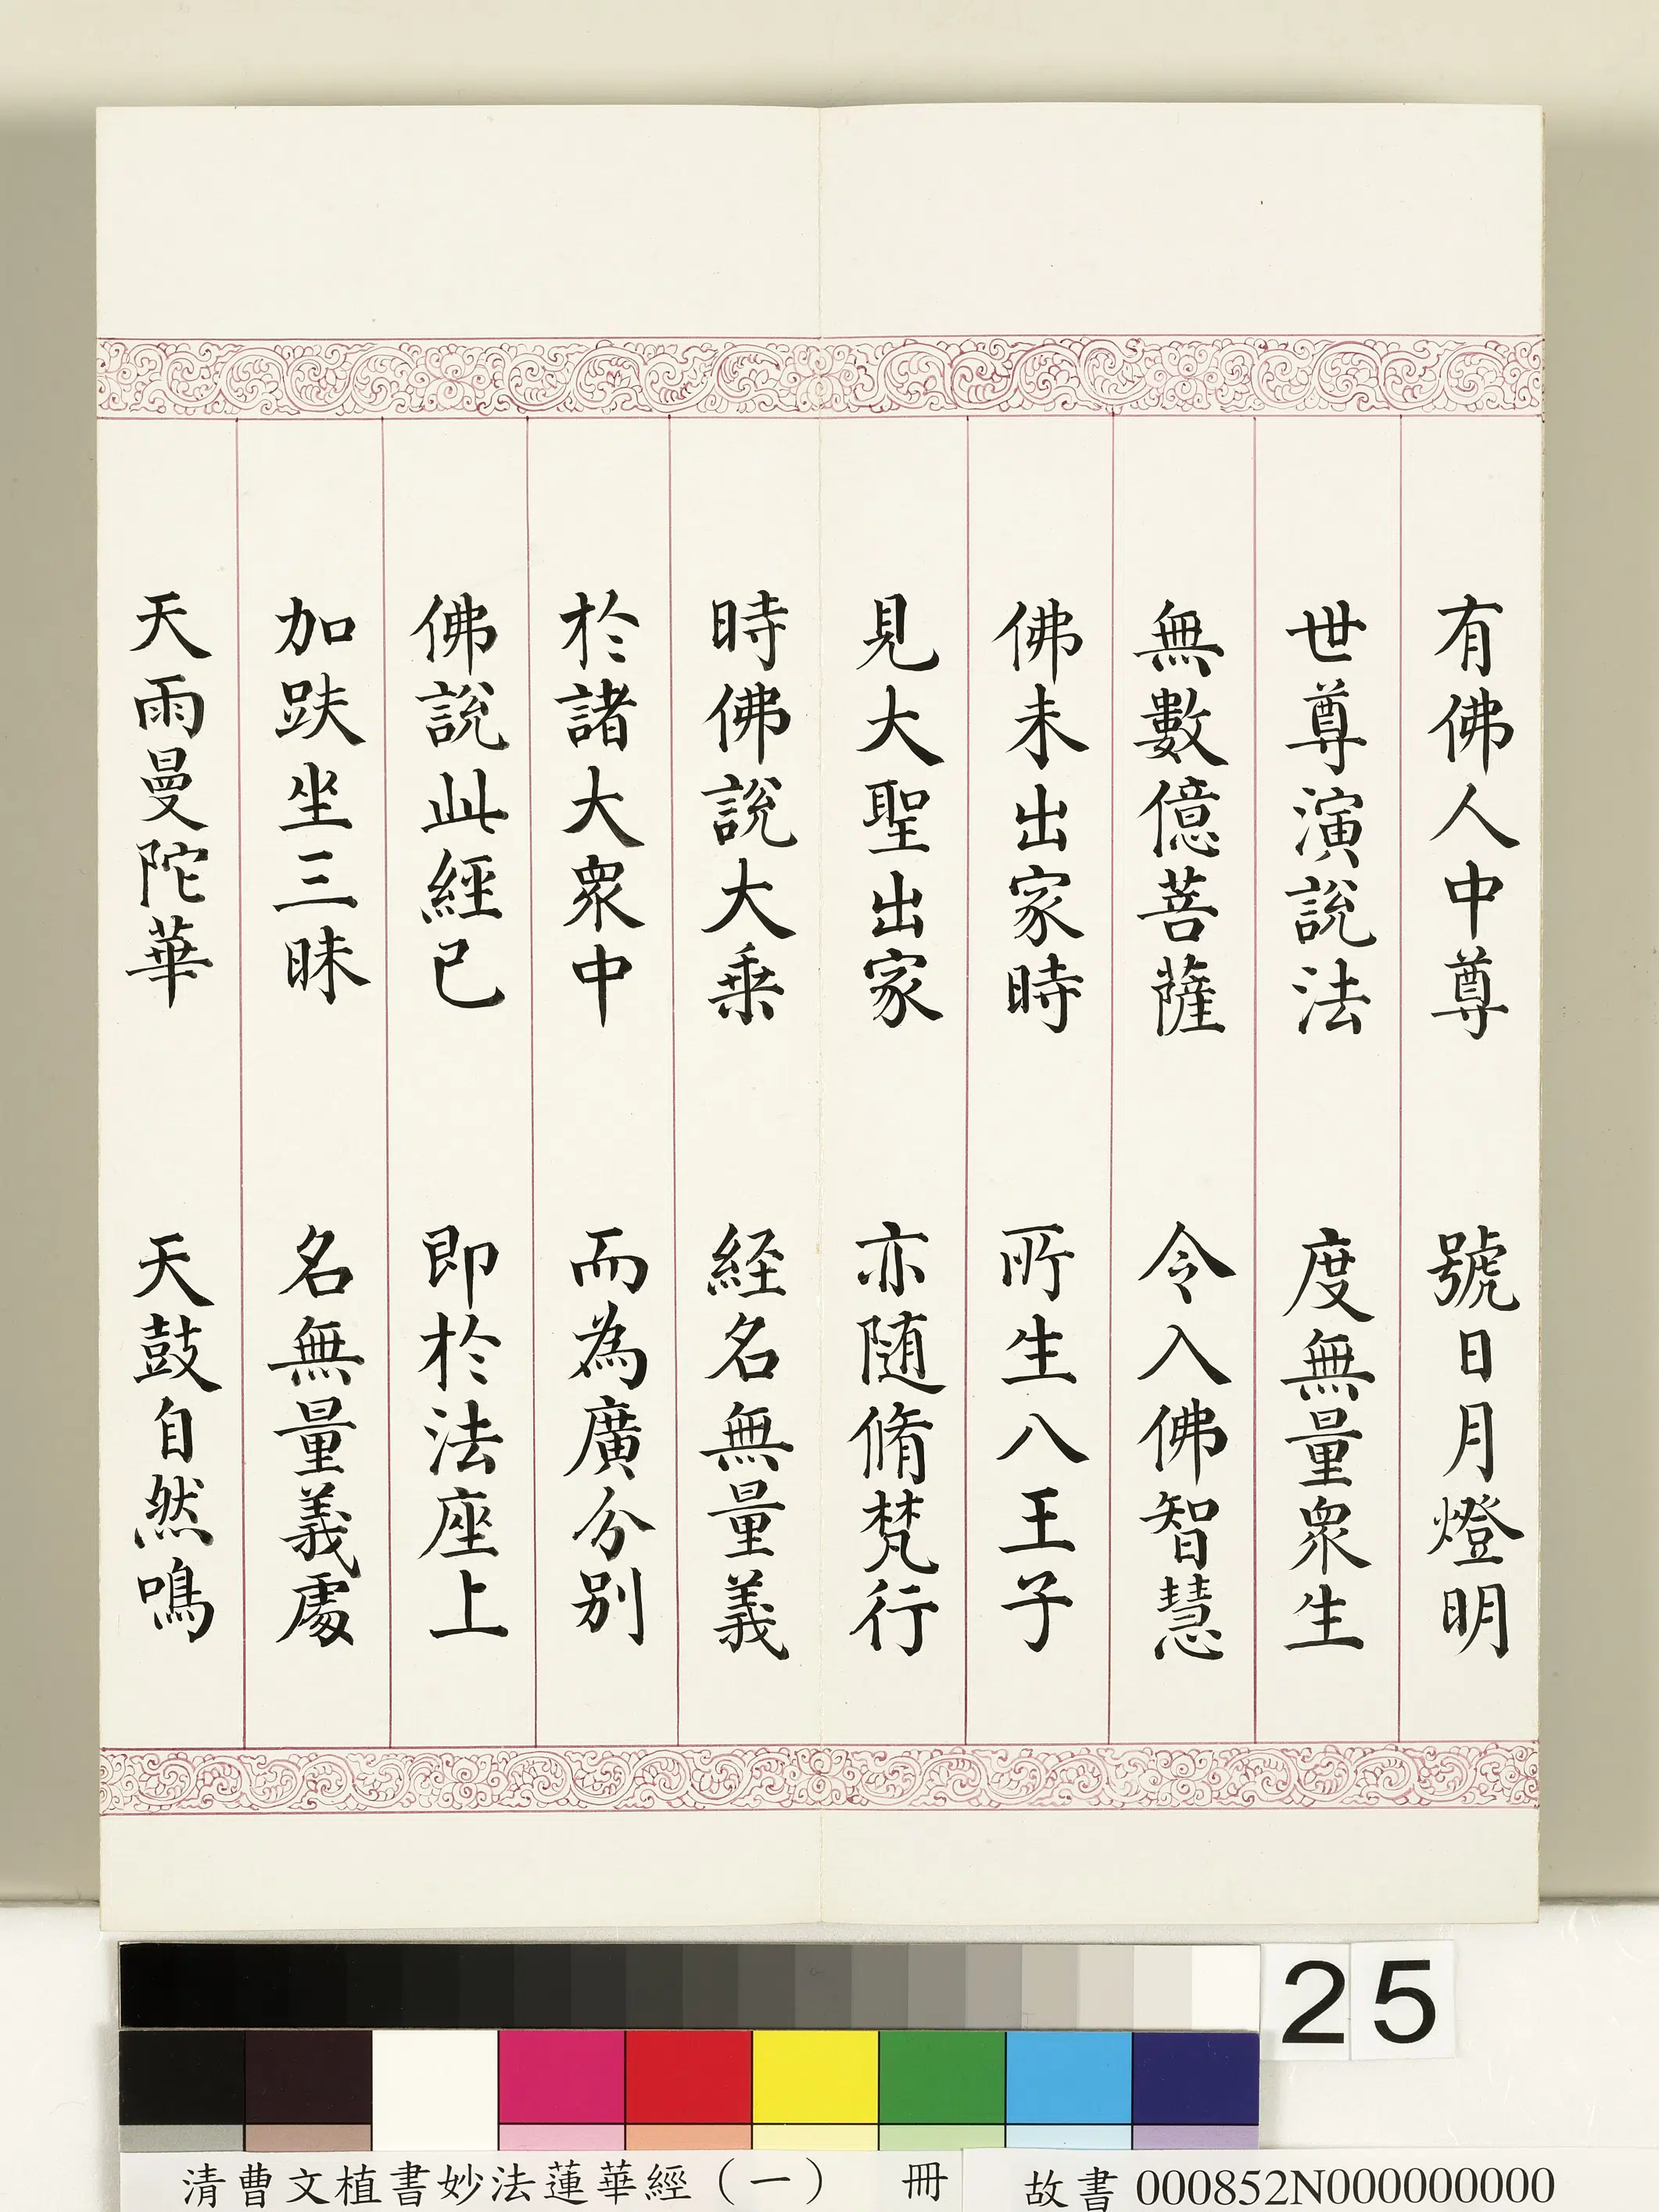 有佛人中尊　號日月燈明
世尊演說法　度無量衆生
無數億菩薩　令入佛智慧
佛未出家時　所生八王子
見大聖出家　亦随脩梵行
時佛說大乗　経名無量義
於諸大衆中　而為廣分別
佛說此經已　即於法座上
加趺坐三昧　名無量義處
天雨曼陀華　天鼓自然鳴
25
清曹文植書妙法蓮華經（一）　冊　故書000852N000000000